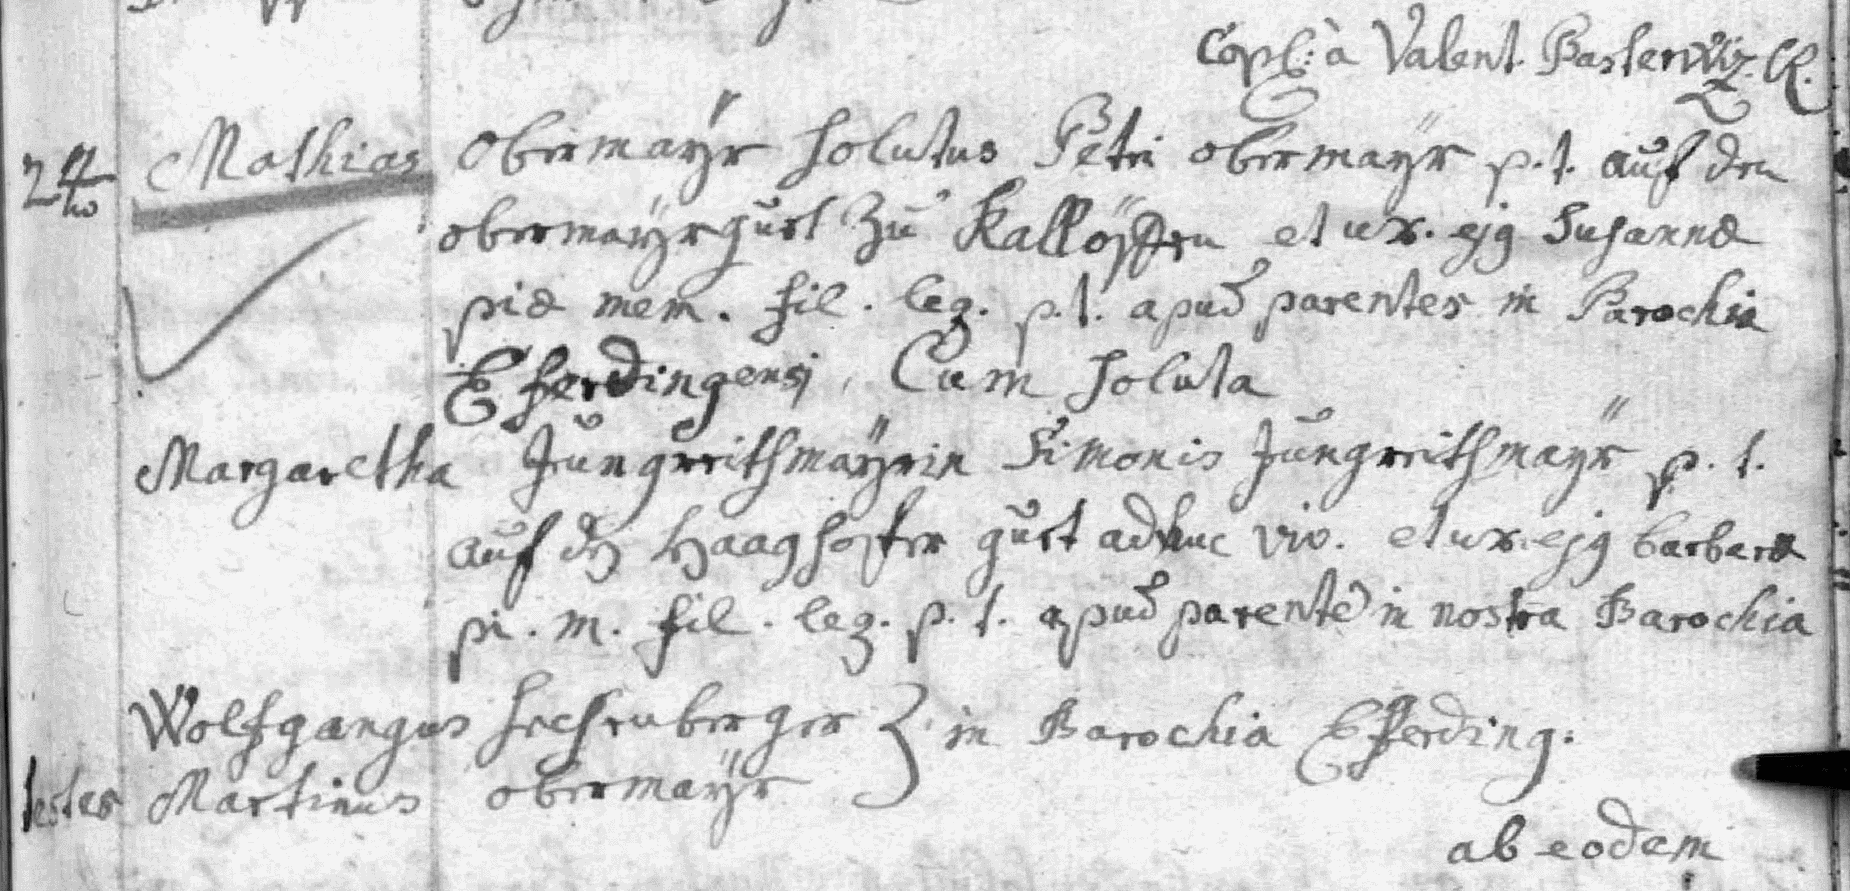 Copl: à Valent. Basterwiz. CR.
2 Mathias Obermaÿr solutus Petri obermaÿr p. t. auf den
obermaÿrguet zu Kallöpfen et ux. ejg Susannæ
piæ mem. fil. leg. p. t. apud parentes in Parochia
Eferdingensj, Cum soluta
Margaretha Jungreithmaÿrin Simonis Jungreithmaÿr p. t.
auf dz Haaghofer guet adhuc viv. et ux. ejg barbaræ
pi. m. fil. leg. p. t. apud parente in nostra Barochia
Wolfgangus in Barochia Efferding.
testes Martinus obermaÿr
ab eodem